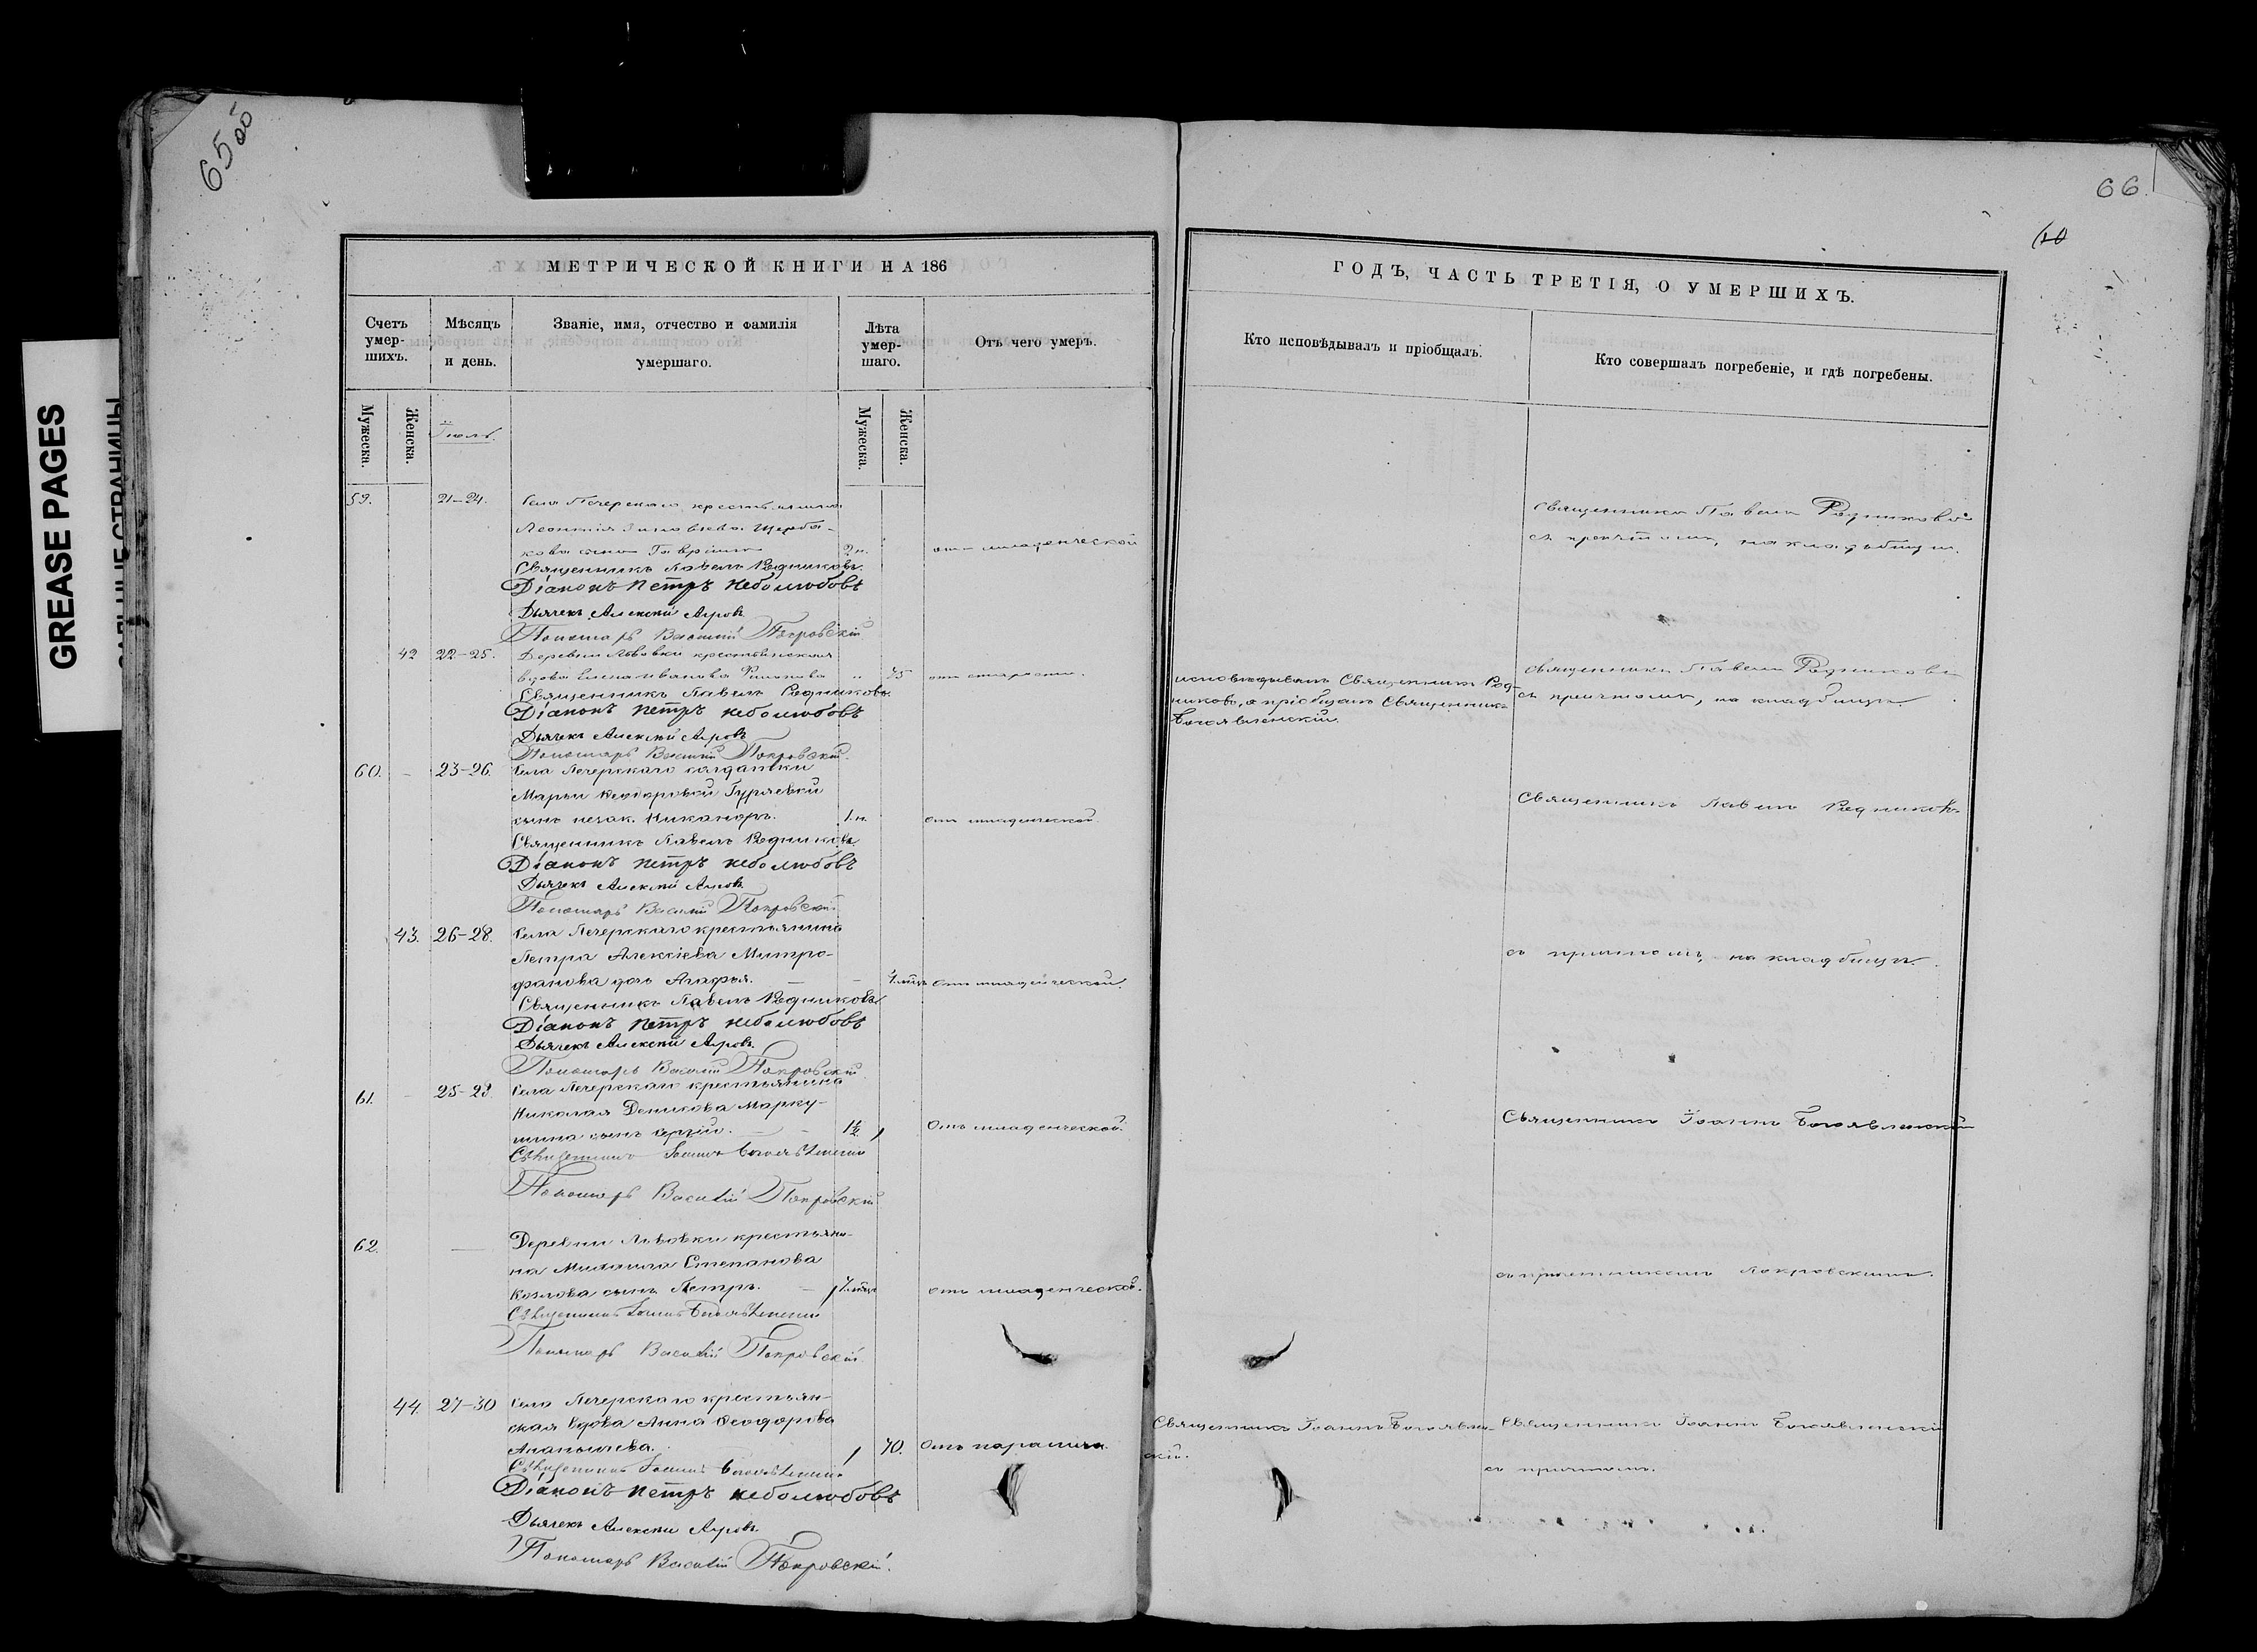 65об
66.
60
GREASE PAGES
САЛЬНЫЕ СТРАНИЦЫ
МЕТРИЧЕСКОЙ КНИГИ НА 186
Счетъ умершихъ.
Мѣсяцъ и день.
Званіе, имя, отчество и фамилія умершаго.
Лѣта умершаго.
Отъ чего умеръ.
Мужеска.
Женска.
Іюль.
Мужеска.
Женска.
59. 21-24. Села Печерскаго крестьянина
Леонтія Зиновьева Щерба-
кова сынъ Гавріилъ 2 н. отъ младенческой
Священникъ Павелъ Родниковъ.
Діаконъ Петръ Неболюбовъ
Дьячекъ Алексѣй Агровъ
Пономарь Василій Покровскій
42 22-25. Деревни Львовки крестьянская
вдова Елена Иванова Филипова " 75 отъ старости.
Священникъ Павелъ Родниковъ.
Діаконъ Петръ Неболюбовъ
Дьячекъ Алексѣй Агровъ
Пономарь Василій Покровскій.
60. - 23-26. Села Печерскаго солдатки
Марьи Ѳеодоровой Гуряевой
сынъ незак. Никаноръ. 1. н. отъ младенческой.
Священникъ Павелъ Родниковъ
Діаконъ Петръ Неболюбовъ
Дьячекъ Алексѣй Агровъ
Пономарь Василій Покровскій
43. 26-28. Села Печерскаго крестьянина
Петра Алексѣева Митро-
фанова дочь Агафья. - - отъ младенческой.
Священникъ Павелъ Родниковъ
Діаконъ Петръ Неболюбовъ
Дьячекъ Алексѣй Агровъ.
Пономарь Василій Покровскій
61. - 25-28. Села Печерскаго крестьянина
Николая Денисова Марку-
шина сынъ Сергій. - - 1½ отъ младенческой.
Священникъ Іоаннъ Богоявленскій
Пономарь Василій Покровскій
62. — Деревни Львовки крестьяни-
на Михаила Степанова
Козлова сынъ Петръ. - отъ младенческой.
Священникъ Іоаннъ Богоявленскій
Пономарь Василій Покровскій
44. 27-30 Села Печерскаго крестьян-
ская вдова Анна Ѳеодорова
Ананьичева. 70. отъ паралича.
Священникъ Іоаннъ Богоявленскій
Діаконъ Петръ Неболюбовъ
Дьячекъ Алексѣй Агровъ.
Пономарь Василій Покровскій.
ГОДЪ, ЧАСТЬ ТРЕТІЯ, О УМЕРШИХЪ.
Кто исповѣдывалъ и пріобщалъ.
Кто совершалъ погребеніе, и гдѣ погребены.
Священникъ Павелъ Родниковъ
съ причтомъ, на кладбищѣ.
исповѣдывалъ Священникъ Род-
никовъ, а пріобщалъ Священникъ
Богоявленскій.
Священникъ Павелъ Родниковъ
съ причтомъ, на кладбищѣ.
Священникъ Павелъ Родниковъ
съ причтомъ, на кладбищѣ.
Священникъ Іоаннъ Богоявленскій
съ причетникомъ Покровскимъ.
Священникъ Іоаннъ Богоявлен-
скій.
Священникъ Іоаннъ Богоявленскій
съ причтомъ.